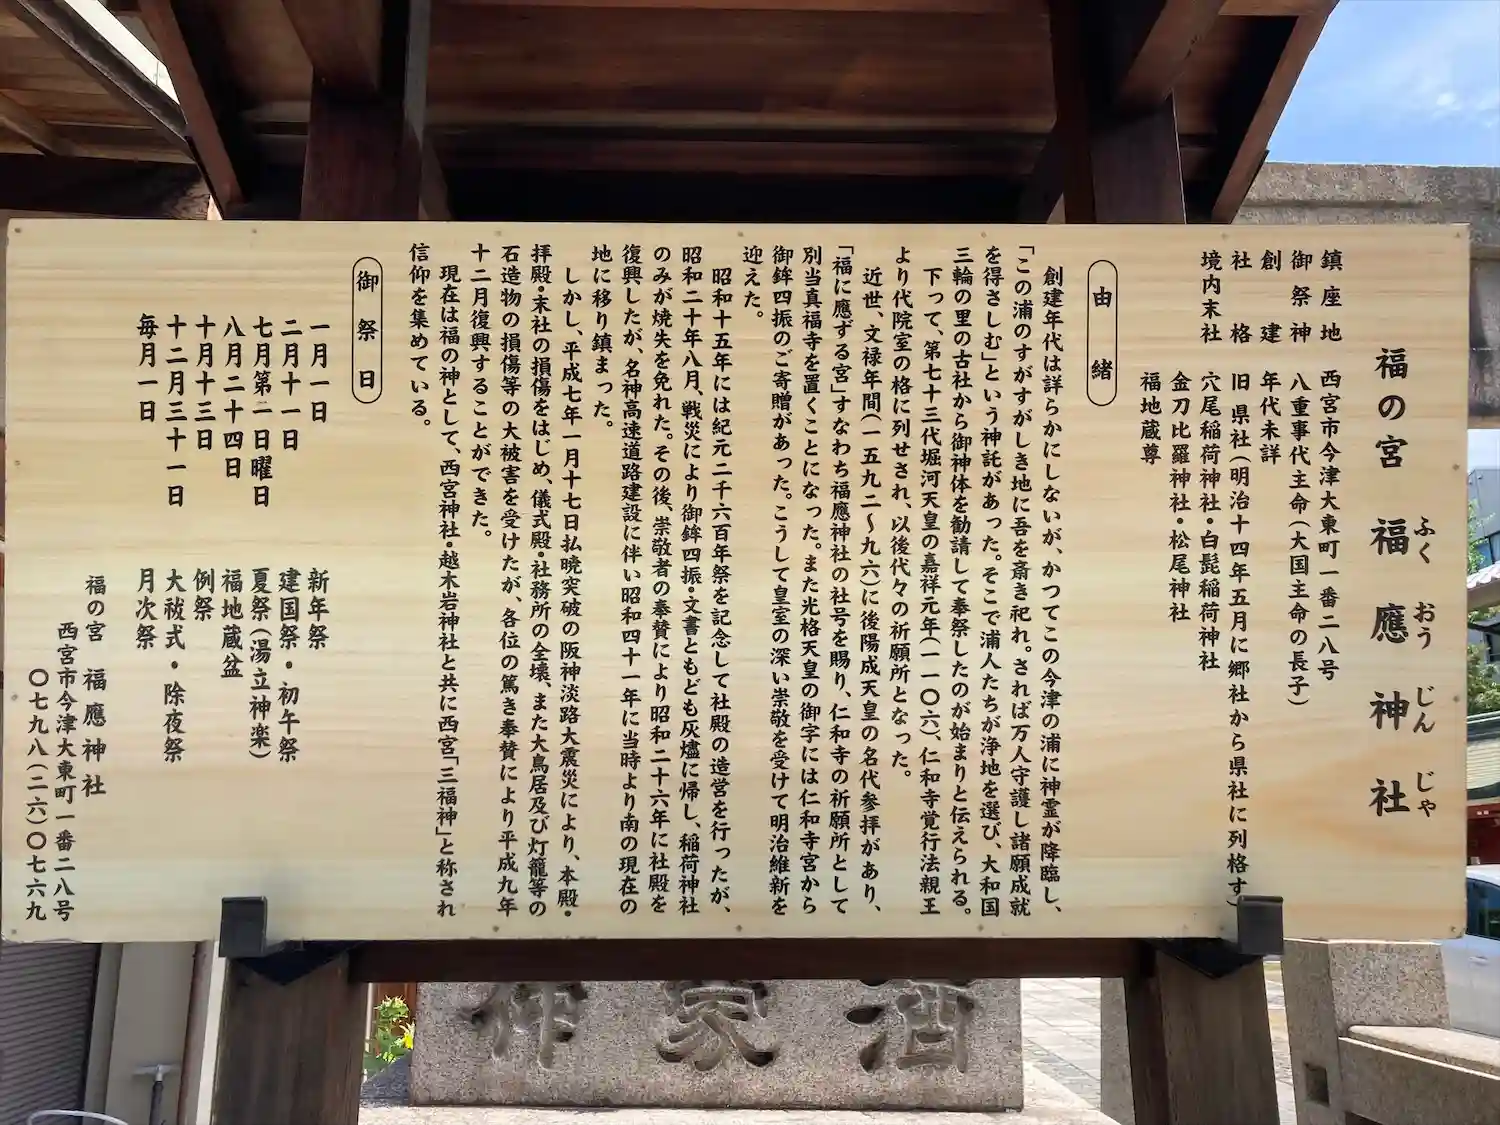 福の宮 福應神社
ふく おう じん じゃ
鎮座地 西宮市今津大東町一番二八号
御祭神 八重事代主命(大国主命の長子)
創建 年代未詳
社格 旧県社(明治十四年五月に郷社から県社に列格す)
境内末社 穴尾稲荷神社・白髭稲荷神社
金刀比羅神社・松尾神社
福地蔵尊
由緒
創建年代は詳らかにしないが、かつてこの今津の浦に神霊が降臨し、
「この浦のすがすがしき地に吾を斎き祀れ。されば万人守護し諸願成就
を得さしむ」という神託があった。そこで浦人たちが浄地を選び、大和国
三輪の里の古社から御神体を勧請して奉祭したのが始まりと伝えられる。
下って、第七十三代堀河天皇の嘉祥元年(一一〇六)、仁和寺覚行法親王
より代院室の格に列せされ、以後代々の祈願所となった。
近世、文禄年間(一五九二～九六)に後陽成天皇の名代参拝があり、
「福に應ずる宮」すなわち福應神社の社号を賜り、仁和寺の祈願所として
別当真福寺を置くことになった。また光格天皇の御字には仁和寺宮から
御鉾四振のご寄贈があった。こうして皇室の深い崇敬を受けて明治維新を
迎えた。
昭和十五年には紀元二千六百年祭を記念して社殿の造営を行ったが、
昭和二十年八月、戦災により御鉾四振・文書ともども灰燼に帰し、稲荷神社
のみが焼失を免れた。その後、崇敬者の奉賛により昭和二十六年に社殿を
復興したが、名神高速道路建設に伴い昭和四十一年に当時より南の現在の
地に移り鎮まった。
しかし、平成七年一月十七日払暁突破の阪神淡路大震災により、本殿・
拝殿・末社の損傷をはじめ、儀式殿・社務所の全壊、また大鳥居及び灯籠等の
石造物の損傷等の大被害を受けたが、各位の篤き奉賛により平成九年
十二月復興することができた。
現在は福の神として、西宮神社・越木岩神社と共に西宮「三福神」と称され
信仰を集めている。
御祭日
一月一日 新年祭
二月十一日 建国祭・初午祭
七月第二日曜日 夏祭(湯立神楽)
八月二十四日 福地蔵盆
十月十三日 例祭
十二月三十一日 大祓式・除夜祭
毎月一日 月次祭
福の宮 福應神社
西宮市今津大東町一番二八号
〇七九八(二六)〇七六九
酒家作